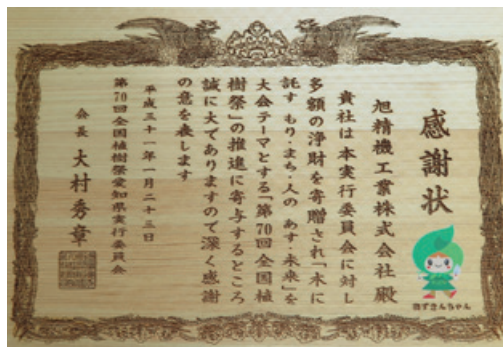 感謝状
旭精機工業株式会社 殿
貴社は本実行委員会に対し
多額の浄財を寄贈され「木に
託す もり・まち・人の あす・未来」を
大会テーマとする「第70回全国植
樹祭」の推進に寄与するところ
誠に大でありますので深く感謝
の意を表します
平成三十一年一月二十三日
第70回全国植樹祭愛知県実行委員会
会長 大村秀章
羽ずきんちゃん